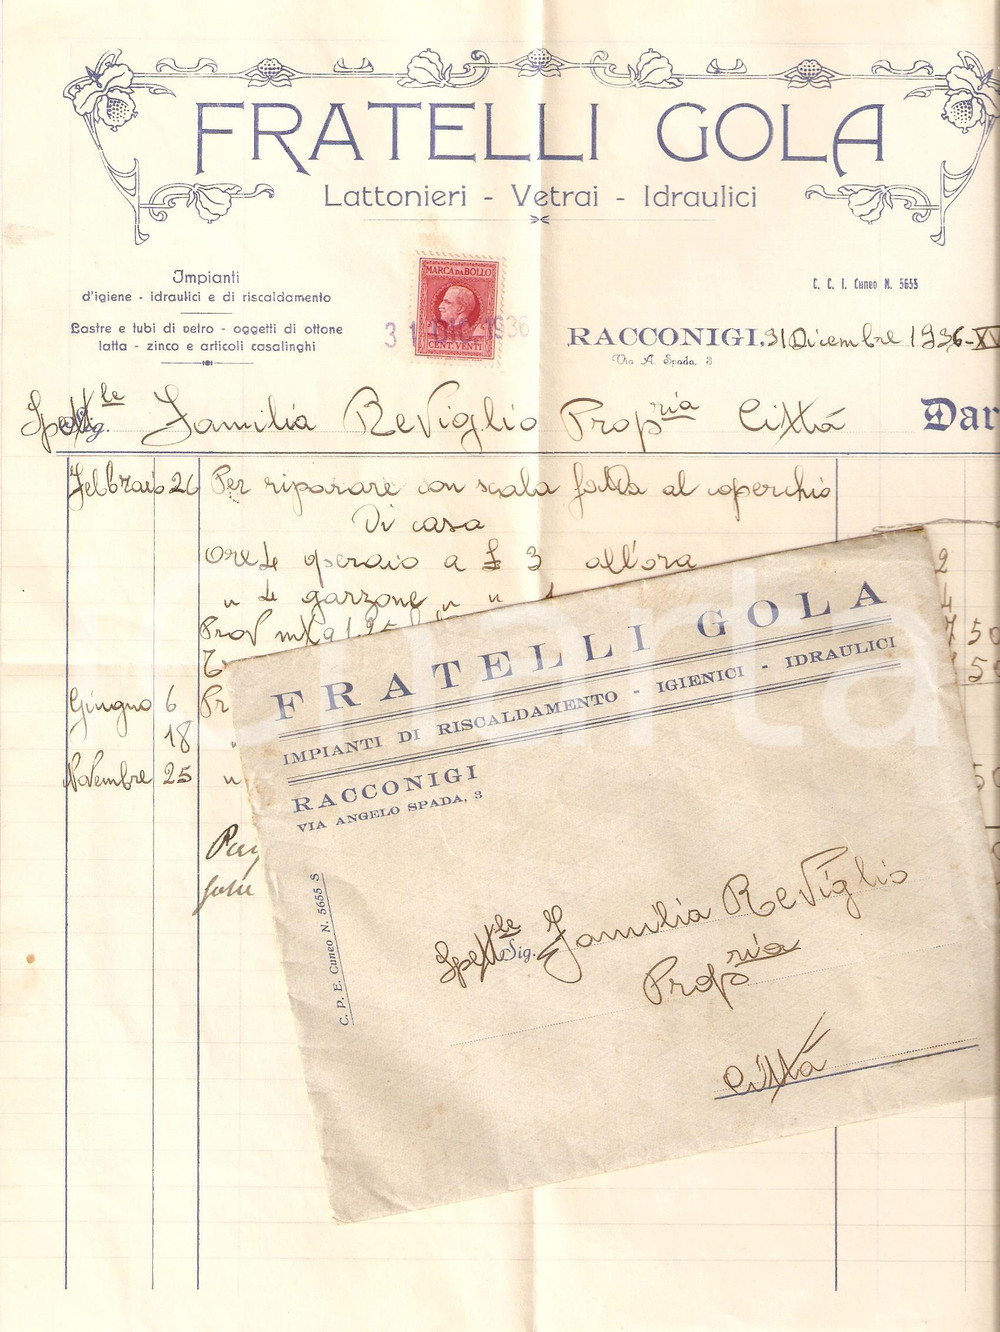 FRATELLI GOLA
Lattonieri - Vetrai - Idraulici
Impianti
d'igiene - idraulici e di riscaldamento
Lastre e tubi di vetro - oggetti di ottone
latta - zinco e articoli casalinghi
MARCA DA BOLLO
CENT. VENTI
31 DIC. 1936
C. C. I. Cuneo N. 5655
RACCONIGI, 31 Dicembre 1936-XV
Via A. Spada, 3
Spett.le Sig. Familia Reviglio Propria Città Dar
Febbraio 26 Per riparare con scala fatta al coperchio
Di casa
Ore 4 operaio a £ 3 all'ora 2
" 4 garzone " " 4
Prov 50
50
Giugno 6 Pr
18 "
Novembre 25 " 50
FRATELLI GOLA
IMPIANTI DI RISCALDAMENTO - IGIENICI - IDRAULICI
RACCONIGI
VIA ANGELO SPADA, 3
C. P. E. Cuneo N. 5655 S
Spett.le Sig. Familia Reviglio
Propria
Città